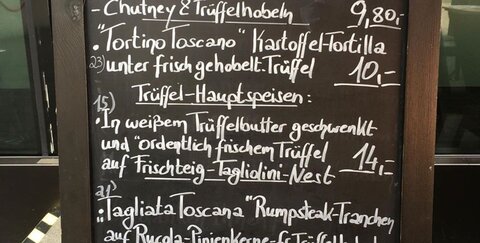 - Chutney & Trüffelhobeln 9,80,-
• "Tortino Toscano" Kartoffel-Tortilla
23) unter frisch gehobelt. Trüffel 10,-
Trüffel-Hauptspeisen:
15)
• In weißem Trüffelbutter geschwenkt
und "ordentlich frischem Trüffel
auf Frischteig-Tagliolini-Nest 14,-
21)
• "Tagliata Toscana" Rumpsteak-Tranchen
auf Rucola-Pinienkerne-